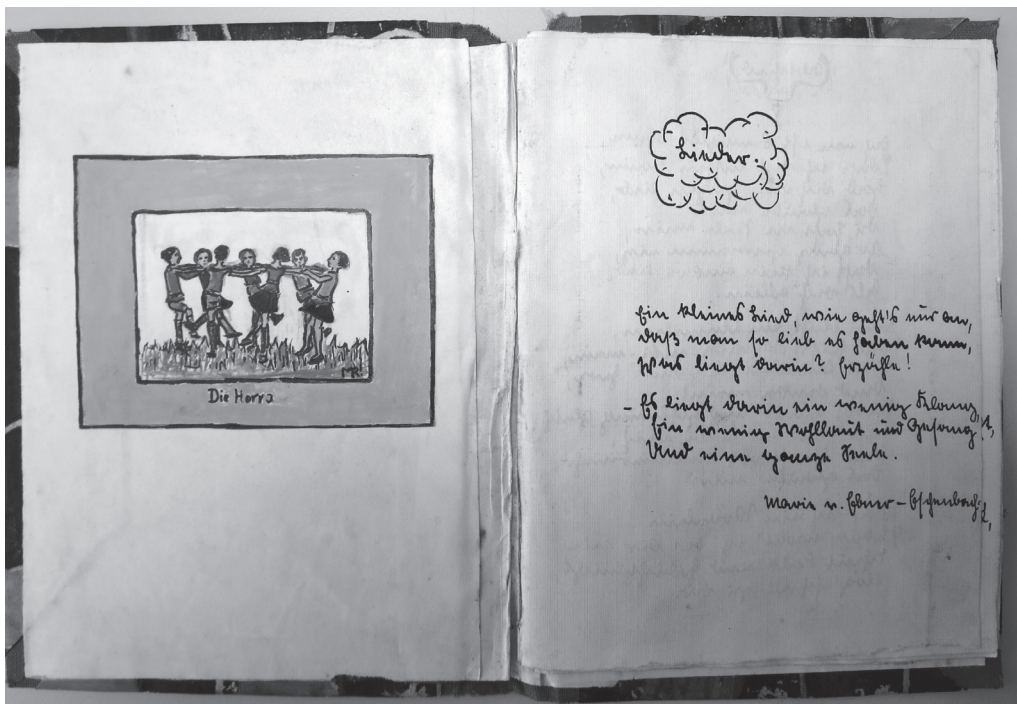 MR
Die Horra
Lieder.
Ein kleines Lied, wie geht's nur an,
daß man so lieb es haben kann,
Was liegt darin? Erzähle!
- Es liegt darin ein wenig Klang,
Ein wenig Wohllaut und Gesang
Und eine ganze Seele.
Marie v. Ebner-Eschenbach.